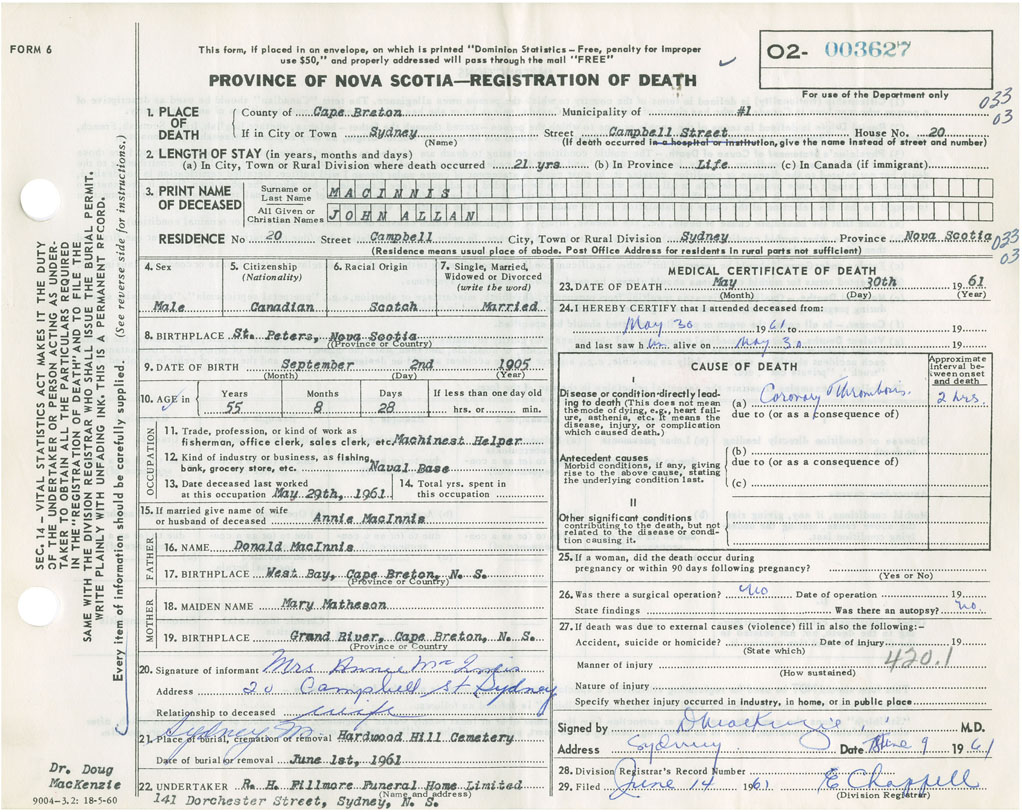 FORM 6
This form, if placed in an envelope, on which is printed "Dominion Statistics – Free, penalty for improper
use $50," and properly addressed will pass through the mail "FREE"
O2- 003627
PROVINCE OF NOVA SCOTIA—REGISTRATION OF DEATH
For use of the Department only
033
03
1. PLACE OF DEATH
County of Cape Breton Municipality of #1
If in City or Town Sydney Street Campbell Street House No. 20
(Name) (If death occurred in a hospital or institution, give the name instead of street and number)
2. LENGTH OF STAY (in years, months and days)
(a) In City, Town or Rural Division where death occurred 21 yrs (b) In Province Life (c) In Canada (if immigrant)
3. PRINT NAME OF DECEASED
Surname or Last Name MACINNIS
All Given or Christian Names JOHN ALLAN
RESIDENCE No 20 Street Campbell City, Town or Rural Division Sydney Province Nova Scotia
033
03
(Residence means usual place of abode. Post Office Address for residents in rural parts not sufficient)
4. Sex
Male
5. Citizenship
(Nationality)
Canadian
6. Racial Origin
Scotch
7. Single, Married,
Widowed or Divorced
(write the word)
Married
8. BIRTHPLACE St. Peters, Nova Scotia
(Province or Country)
9. DATE OF BIRTH September 2nd 1905
(Month) (Day) (Year)
10. AGE in Years Months Days If less than one day old
55 8 28 hrs. or min.
OCCUPATION
11. Trade, profession, or kind of work as
fisherman, office clerk, sales clerk, etc. Machinest Helper
12. Kind of industry or business, as fishing,
bank, grocery store, etc. Naval Base
13. Date deceased last worked
at this occupation May 29th, 1961
14. Total yrs. spent in
this occupation
15. If married give name of wife
or husband of deceased Annie MacInnis
FATHER
16. NAME Donald MacInnis
17. BIRTHPLACE West Bay, Cape Breton, N. S.
(Province or Country)
MOTHER
18. MAIDEN NAME Mary Matheson
19. BIRTHPLACE Grand River, Cape Breton, N. S.
(Province or Country)
20. Signature of informant Mrs Annie McInnis
Address 20 Campbell St Sydney
Relationship to deceased wife
Sydney
21. Place of burial, cremation or removal Hardwood Hill Cemetery
Date of burial or removal June 1st, 1961
22. UNDERTAKER R. H. Fillmore Funeral Home Limited
(Name and address)
141 Dorchester Street, Sydney, N. S.
MEDICAL CERTIFICATE OF DEATH
23. DATE OF DEATH May 30th 1961
(Month) (Day) (Year)
24. I HEREBY CERTIFY that I attended deceased from:
May 30 1961 to 19
and last saw him alive on May 30 19
CAUSE OF DEATH
Approximate
interval be-
tween onset
and death
I
Disease or condition directly lead-
ing to death (This does not mean
the mode of dying, e.g., heart fail-
ure, asthenia, etc. It means the
disease, injury, or complication
which caused death.)
(a) Coronary Thrombosis 2 hrs.
due to (or as a consequence of)
Antecedent causes
Morbid conditions, if any, giving
rise to the above cause, stating
the underlying condition last.
(b)
due to (or as a consequence of)
(c)
II
Other significant conditions
contributing to the death, but not
related to the disease or condi-
tion causing it.
25. If a woman, did the death occur during
pregnancy or within 90 days following pregnancy?
(Yes or No)
26. Was there a surgical operation? No Date of operation 19
State findings Was there an autopsy? No.
27. If death was due to external causes (violence) fill in also the following:–
Accident, suicide or homicide? Date of injury 19
(State which)
420.1
Manner of injury
(How sustained)
Nature of injury
Specify whether injury occurred in industry, in home, or in public place
Signed by D MacKenzie M.D.
Address Sydney Date June 9 1961
28. Division Registrar's Record Number
29. Filed June 14 1961 E Chappell
(Division Registrar)
SEC. 14 – VITAL STATISTICS ACT MAKES IT THE DUTY
OF THE UNDERTAKER OR PERSON ACTING AS UNDER-
TAKER TO OBTAIN ALL THE PARTICULARS REQUIRED
IN THE "REGISTRATION OF DEATH" AND TO FILE THE
SAME WITH THE DIVISION REGISTRAR WHO SHALL ISSUE THE BURIAL PERMIT.
WRITE PLAINLY WITH UNFADING INK. THIS IS A PERMANENT RECORD.
Every item of information should be carefully supplied. (See reverse side for instructions.)
Dr. Doug
MacKenzie
9004-3.2: 18-5-60